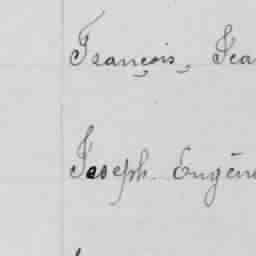 François, Jea
Joseph Eugèn